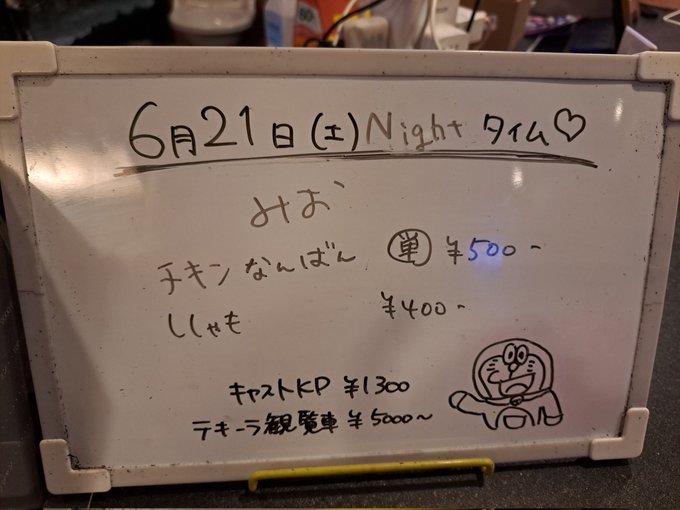 6月21日(土)Nightタイム♡
みお
チキンなんばん 単 ¥500~
ししゃも ¥400~
キャストKP ¥1300
テキーラ観覧車 ¥5000~